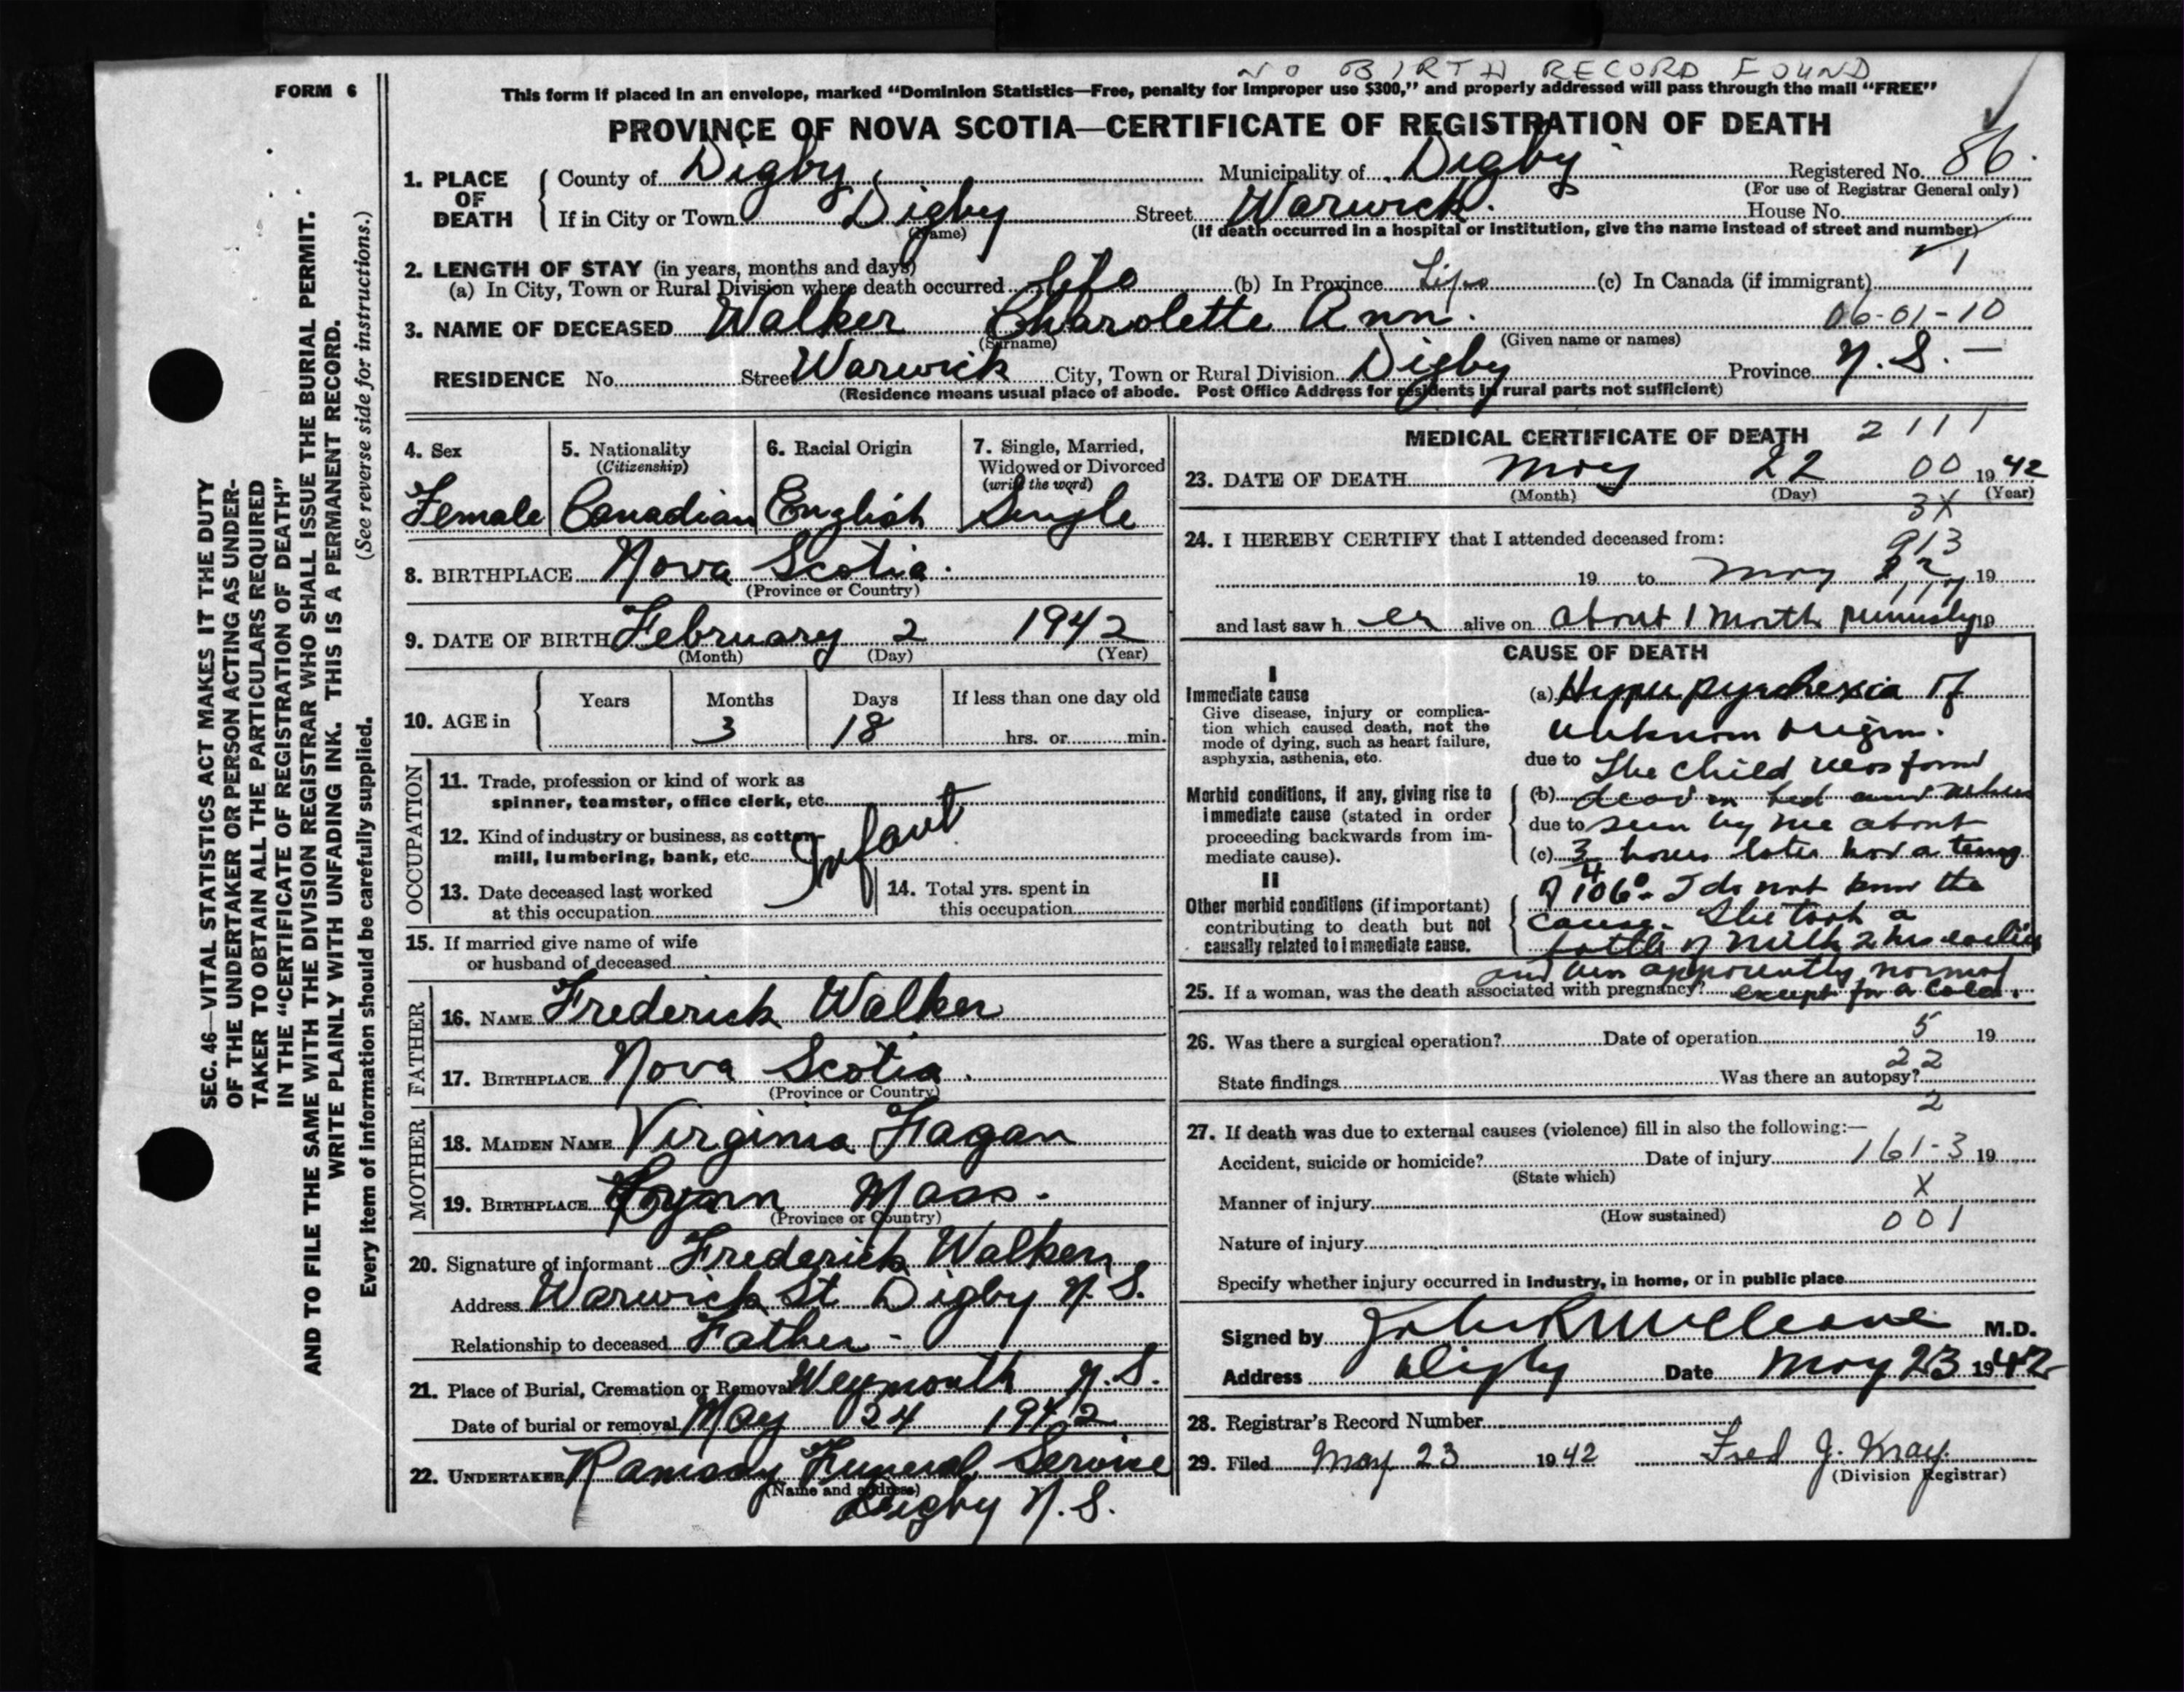 NO BIRTH RECORD FOUND
FORM 6
This form if placed in an envelope, marked "Dominion Statistics—Free, penalty for improper use $300," and properly addressed will pass through the mail "FREE"
PROVINCE OF NOVA SCOTIA—CERTIFICATE OF REGISTRATION OF DEATH
1. PLACE OF DEATH County of Digby Municipality of Digby Registered No. 86
(For use of Registrar General only)
If in City or Town Digby Street Warwick House No.
(Name) (If death occurred in a hospital or institution, give the name instead of street and number)
2. LENGTH OF STAY (in years, months and days) 1
(a) In City, Town or Rural Division where death occurred Life (b) In Province Life (c) In Canada (if immigrant)
3. NAME OF DECEASED Walker Charolette Ann. 06-01-10
(Surname) (Given name or names)
RESIDENCE No. Street Warwick City, Town or Rural Division Digby Province N.S. —
(Residence means usual place of abode. Post Office Address for residents in rural parts not sufficient)
4. Sex 5. Nationality (Citizenship) 6. Racial Origin 7. Single, Married, Widowed or Divorced (write the word)
Female Canadian English Single
8. BIRTHPLACE Nova Scotia.
(Province or Country)
9. DATE OF BIRTH February 2 1942
(Month) (Day) (Year)
10. AGE in Years Months Days If less than one day old
3 18 hrs. or min.
OCCUPATION
11. Trade, profession or kind of work as
spinner, teamster, office clerk, etc.
12. Kind of industry or business, as cotton-
mill, lumbering, bank, etc. Infant
13. Date deceased last worked
at this occupation
14. Total yrs. spent in
this occupation
15. If married give name of wife
or husband of deceased
FATHER
16. NAME Frederick Walker
17. BIRTHPLACE Nova Scotia.
(Province or Country)
MOTHER
18. MAIDEN NAME Virginia Fagan
19. BIRTHPLACE Lynn Mass.
(Province or Country)
20. Signature of informant Frederick Walker
Address Warwick St Digby N.S.
Relationship to deceased Father -
21. Place of Burial, Cremation or Removal Weymouth N.S.
Date of burial or removal May 24 1942
22. UNDERTAKER Ramsay Funeral Service
(Name and address)
Digby N.S.
MEDICAL CERTIFICATE OF DEATH 2111
23. DATE OF DEATH May 22 00 1942
(Month) (Day) (Year)
3X
24. I HEREBY CERTIFY that I attended deceased from:
913
19 to May 22 19
117
and last saw h er alive on about 1 month previously 19
CAUSE OF DEATH
I
Immediate cause
Give disease, injury or complica-
tion which caused death, not the
mode of dying, such as heart failure,
asphyxia, asthenia, etc.
Morbid conditions, if any, giving rise to
immediate cause (stated in order
proceeding backwards from im-
mediate cause).
II
Other morbid conditions (if important)
contributing to death but not
causally related to immediate cause.
(a) Hyperpyrexia of
unknown origin.
due to The child was found
(b) dead in bed and when
due to seen by me about
(c) 3/4 hours later had a temp
of 106° - I do not know the
cause. She took a
bottle of milk 2 hrs earlier
and was apparently normal
25. If a woman, was the death associated with pregnancy? except for a cold.
26. Was there a surgical operation? Date of operation 5 19
22
State findings Was there an autopsy?
2
27. If death was due to external causes (violence) fill in also the following:—
Accident, suicide or homicide? Date of injury 161-3 19
(State which)
X
Manner of injury
(How sustained)
001
Nature of injury
Specify whether injury occurred in industry, in home, or in public place
Signed by M.D.
Address Digby Date May 23 1942
28. Registrar's Record Number
29. Filed May 23 1942 Fred J. May
(Division Registrar)
SEC. 46—VITAL STATISTICS ACT MAKES IT THE DUTY
OF THE UNDERTAKER OR PERSON ACTING AS UNDER-
TAKER TO OBTAIN ALL THE PARTICULARS REQUIRED
IN THE "CERTIFICATE OF REGISTRATION OF DEATH"
AND TO FILE THE SAME WITH THE DIVISION REGISTRAR WHO SHALL ISSUE THE BURIAL PERMIT.
WRITE PLAINLY WITH UNFADING INK. THIS IS A PERMANENT RECORD.
Every item of information should be carefully supplied. (See reverse side for instructions.)